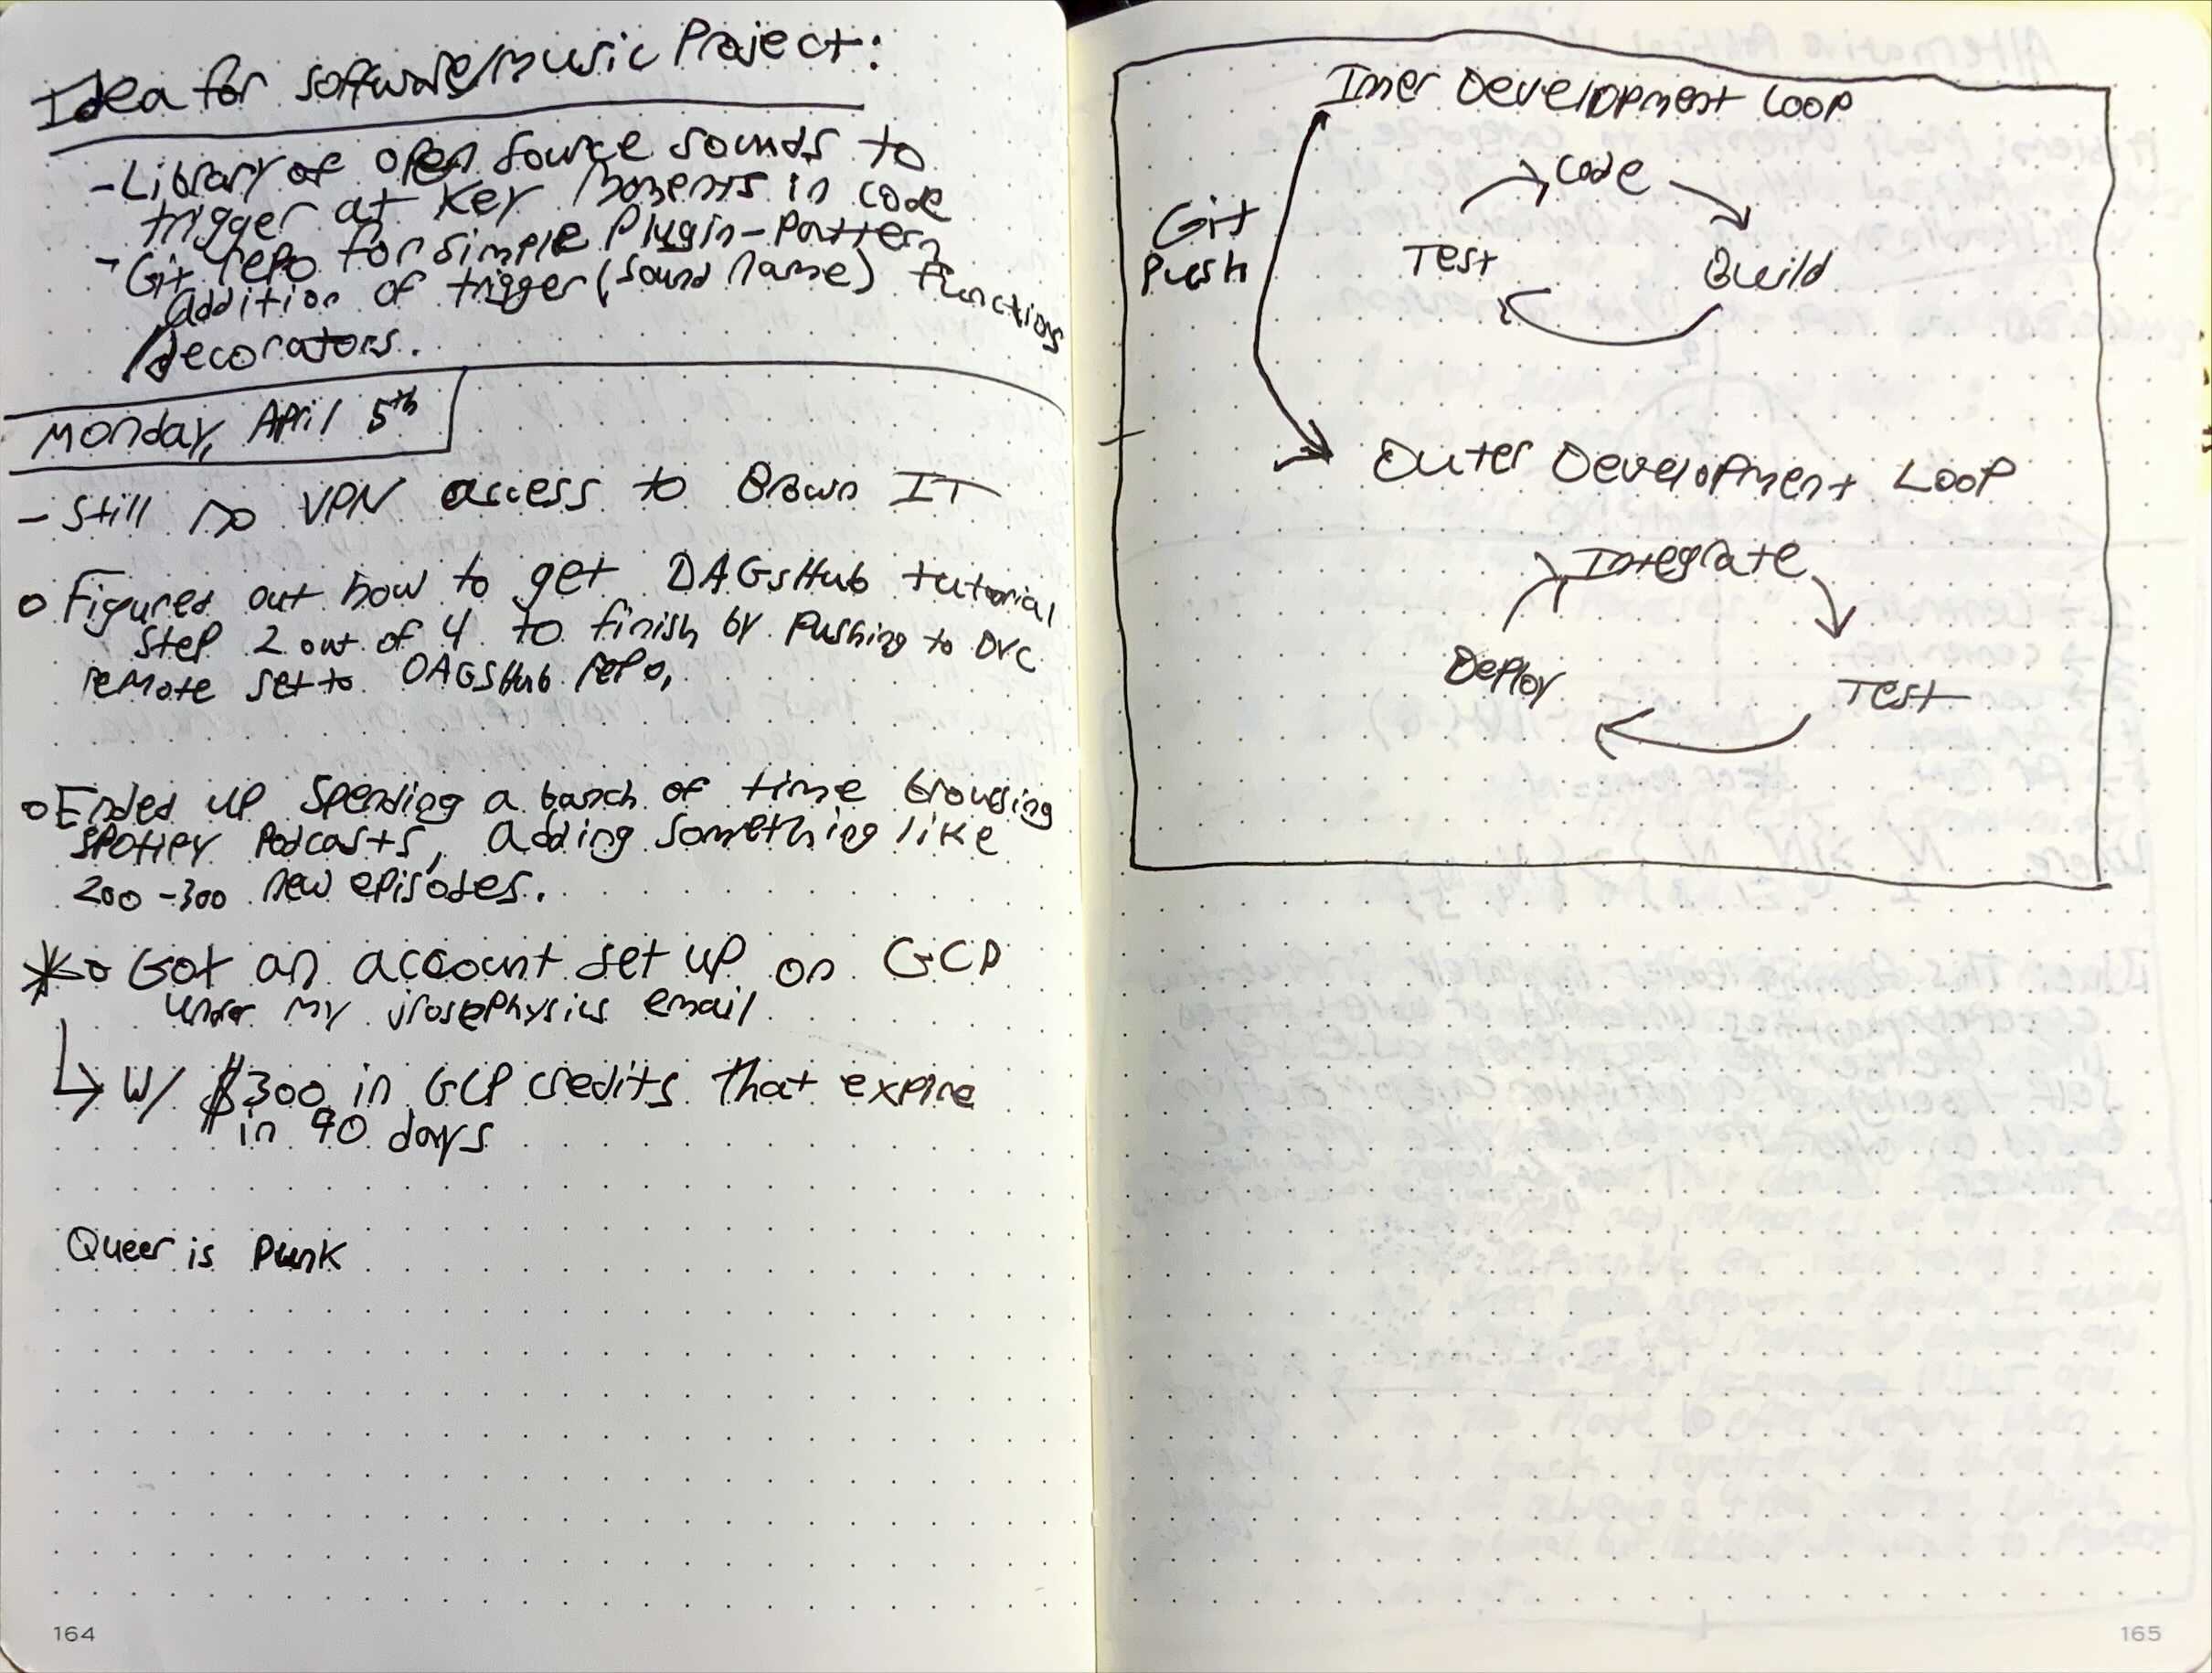 Idea for software/music Project:
- Library of open source sounds to
trigger at key moments in code
- Git repo for simple Plugin-Pattern
addition of trigger(sound name) functions
/decorators.
Monday, April 5th
- Still no VPN access to Brown IT
o Figured out how to get DAGsHub tutorial
step 2 out of 4 to finish by pushing to DVC
remote set to DAGsHub repo.
o Ended up spending a bunch of time browsing
Spotify Podcasts, adding something like
200-300 new episodes.
* o Got an account set up on GCP
under my jrosephysics email
↳ w/ $300 in GCP credits that expire
in 90 days
Queer is Punk
164
Inner Development Loop
Code
Git
Push
Test
Build
Outer Development Loop
Integrate
Deploy
Test
165